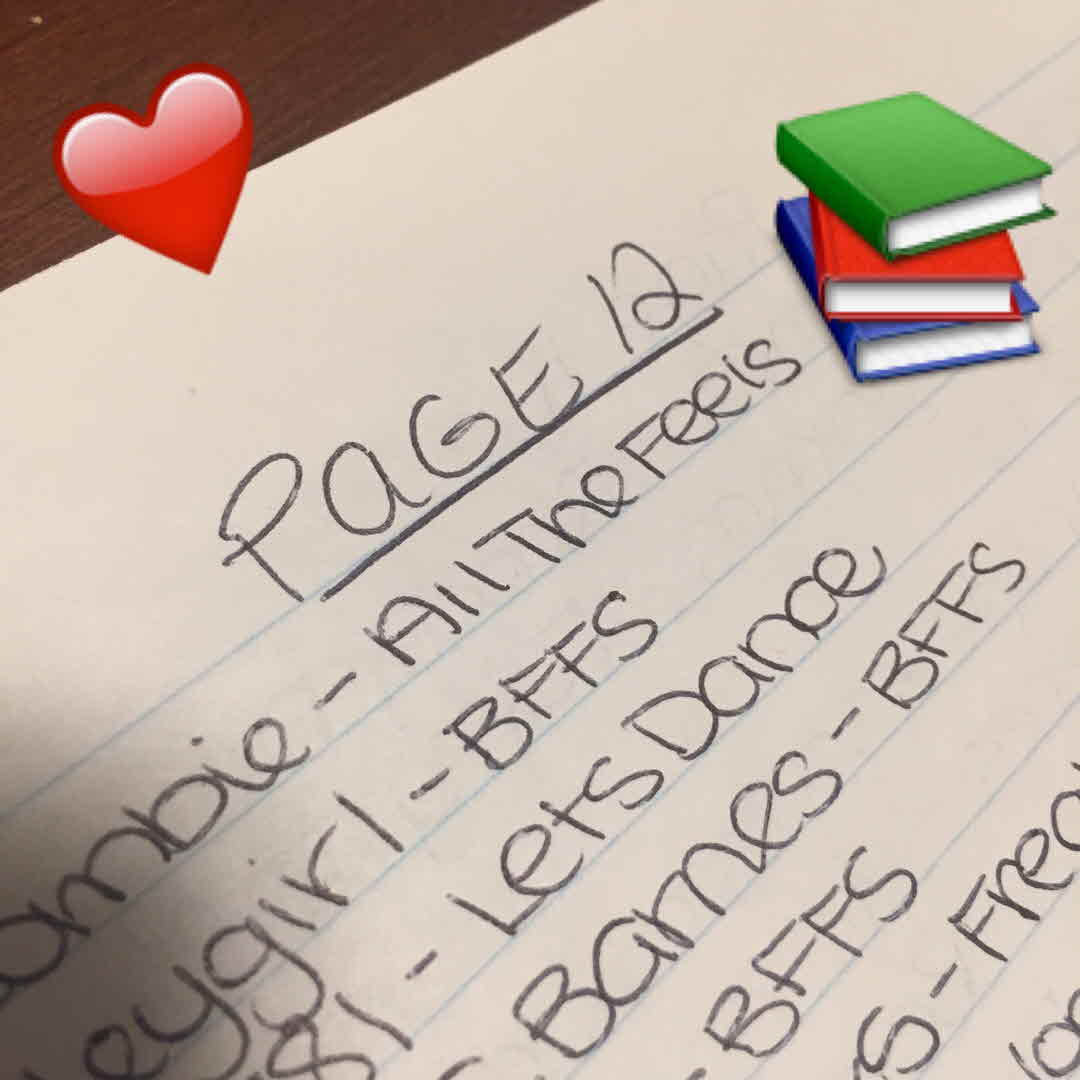 PAGE 12
ambie - All The Feels
eygirl - BFFS
81 - Lets Dance
Barnes - BFFS
- BFFS
S - Frea